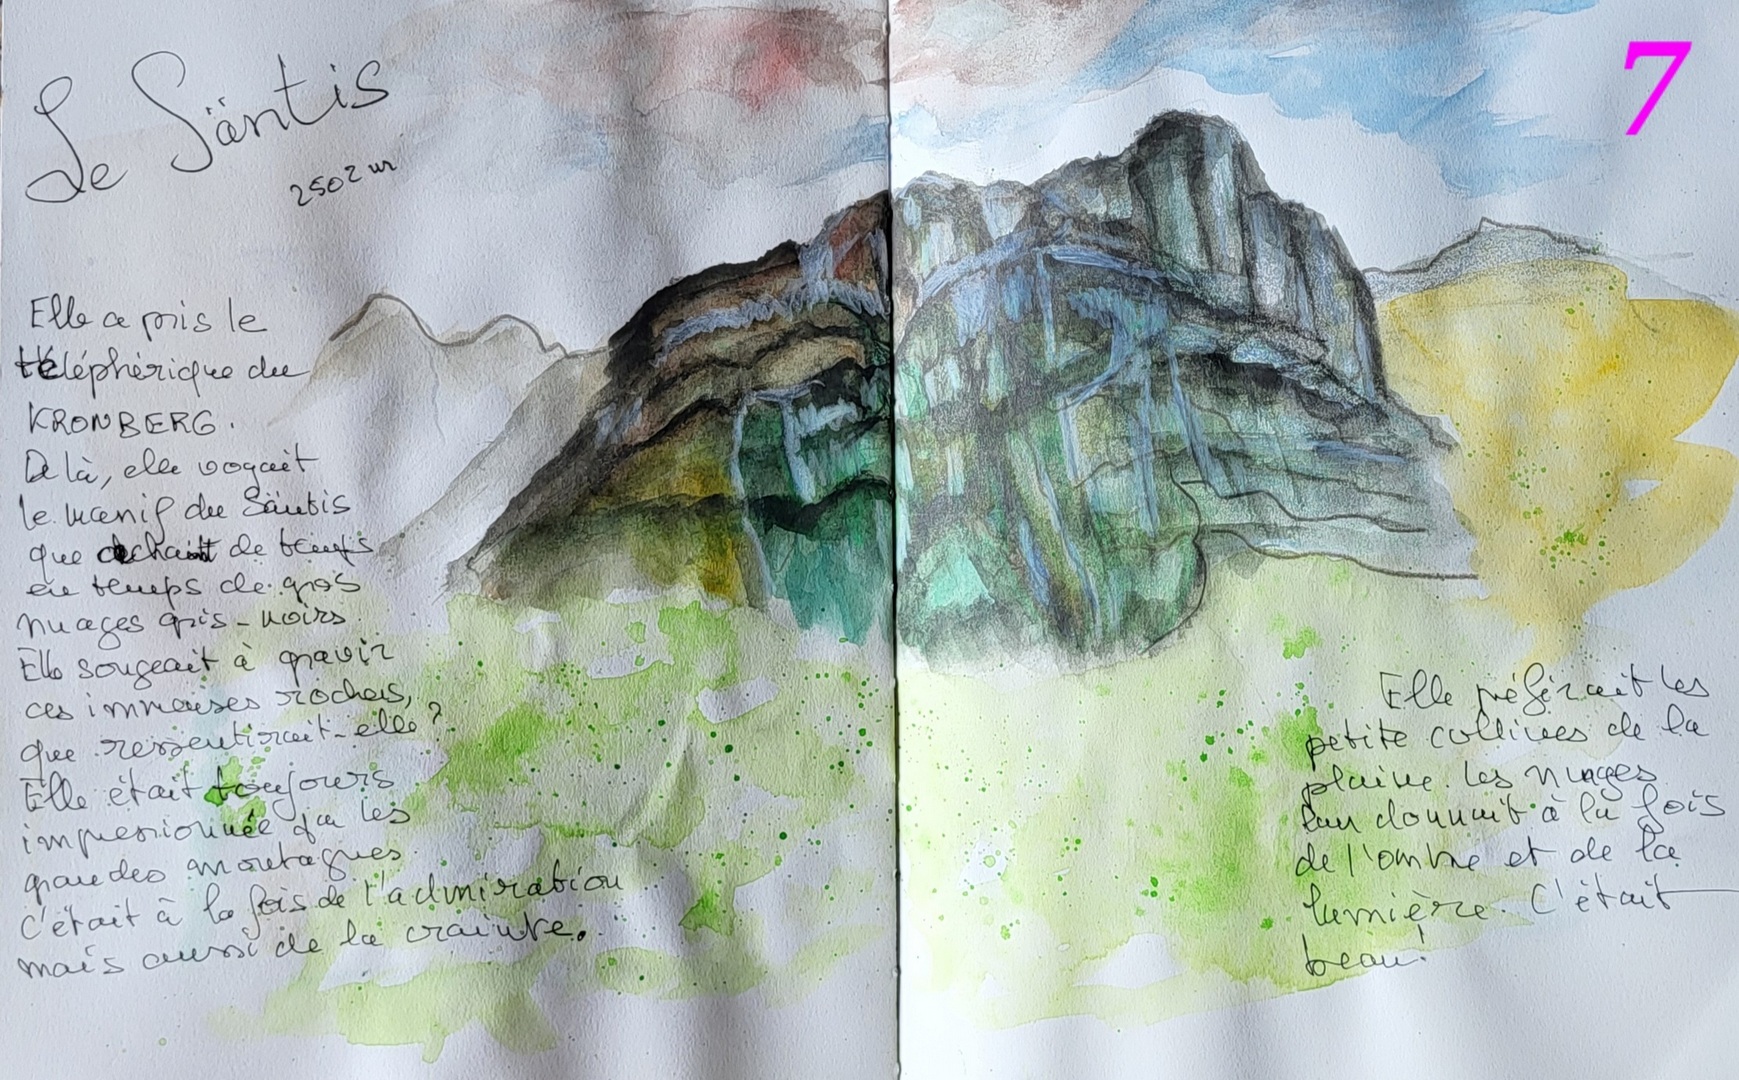 Le Säntis
2502 m
7
Elle a pris le
téléphérique du
KRONBERG.
De là, elle voyait
le massif du Säntis
que cachait de temps
en temps de gros
nuages gris-noirs.
Elle songeait à gravir
ces immenses rochers,
que ressentirait-elle ?
Elle était toujours
impressionnée par les
grandes montagnes.
C'était à la fois de l'admiration
mais aussi de la crainte.
Elle préférait les
petite collines de la
plaine. Les nuages
leur donnait à la fois
de l'ombre et de la
lumière. C'était
beau!